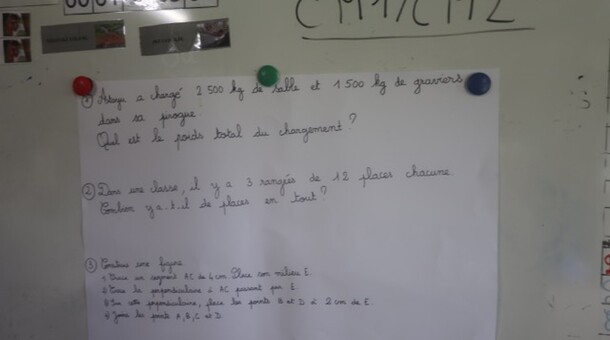 CM1/CM2
① Abaya a chargé 2 500 kg de sable et 1 500 kg de graviers
dans sa pirogue.
Quel est le poids total du chargement ?
② Dans une classe, il y a 3 rangées de 12 places chacune.
Combien y a-t-il de places en tout ?
③ Construis une figure
1) Trace un segment AC de 4 cm. Place son milieu E.
2) Trace la perpendiculaire à AC passant par E.
3) Sur cette perpendiculaire, place les points B et D à 2 cm de E.
4) Joins les points A, B, C et D.